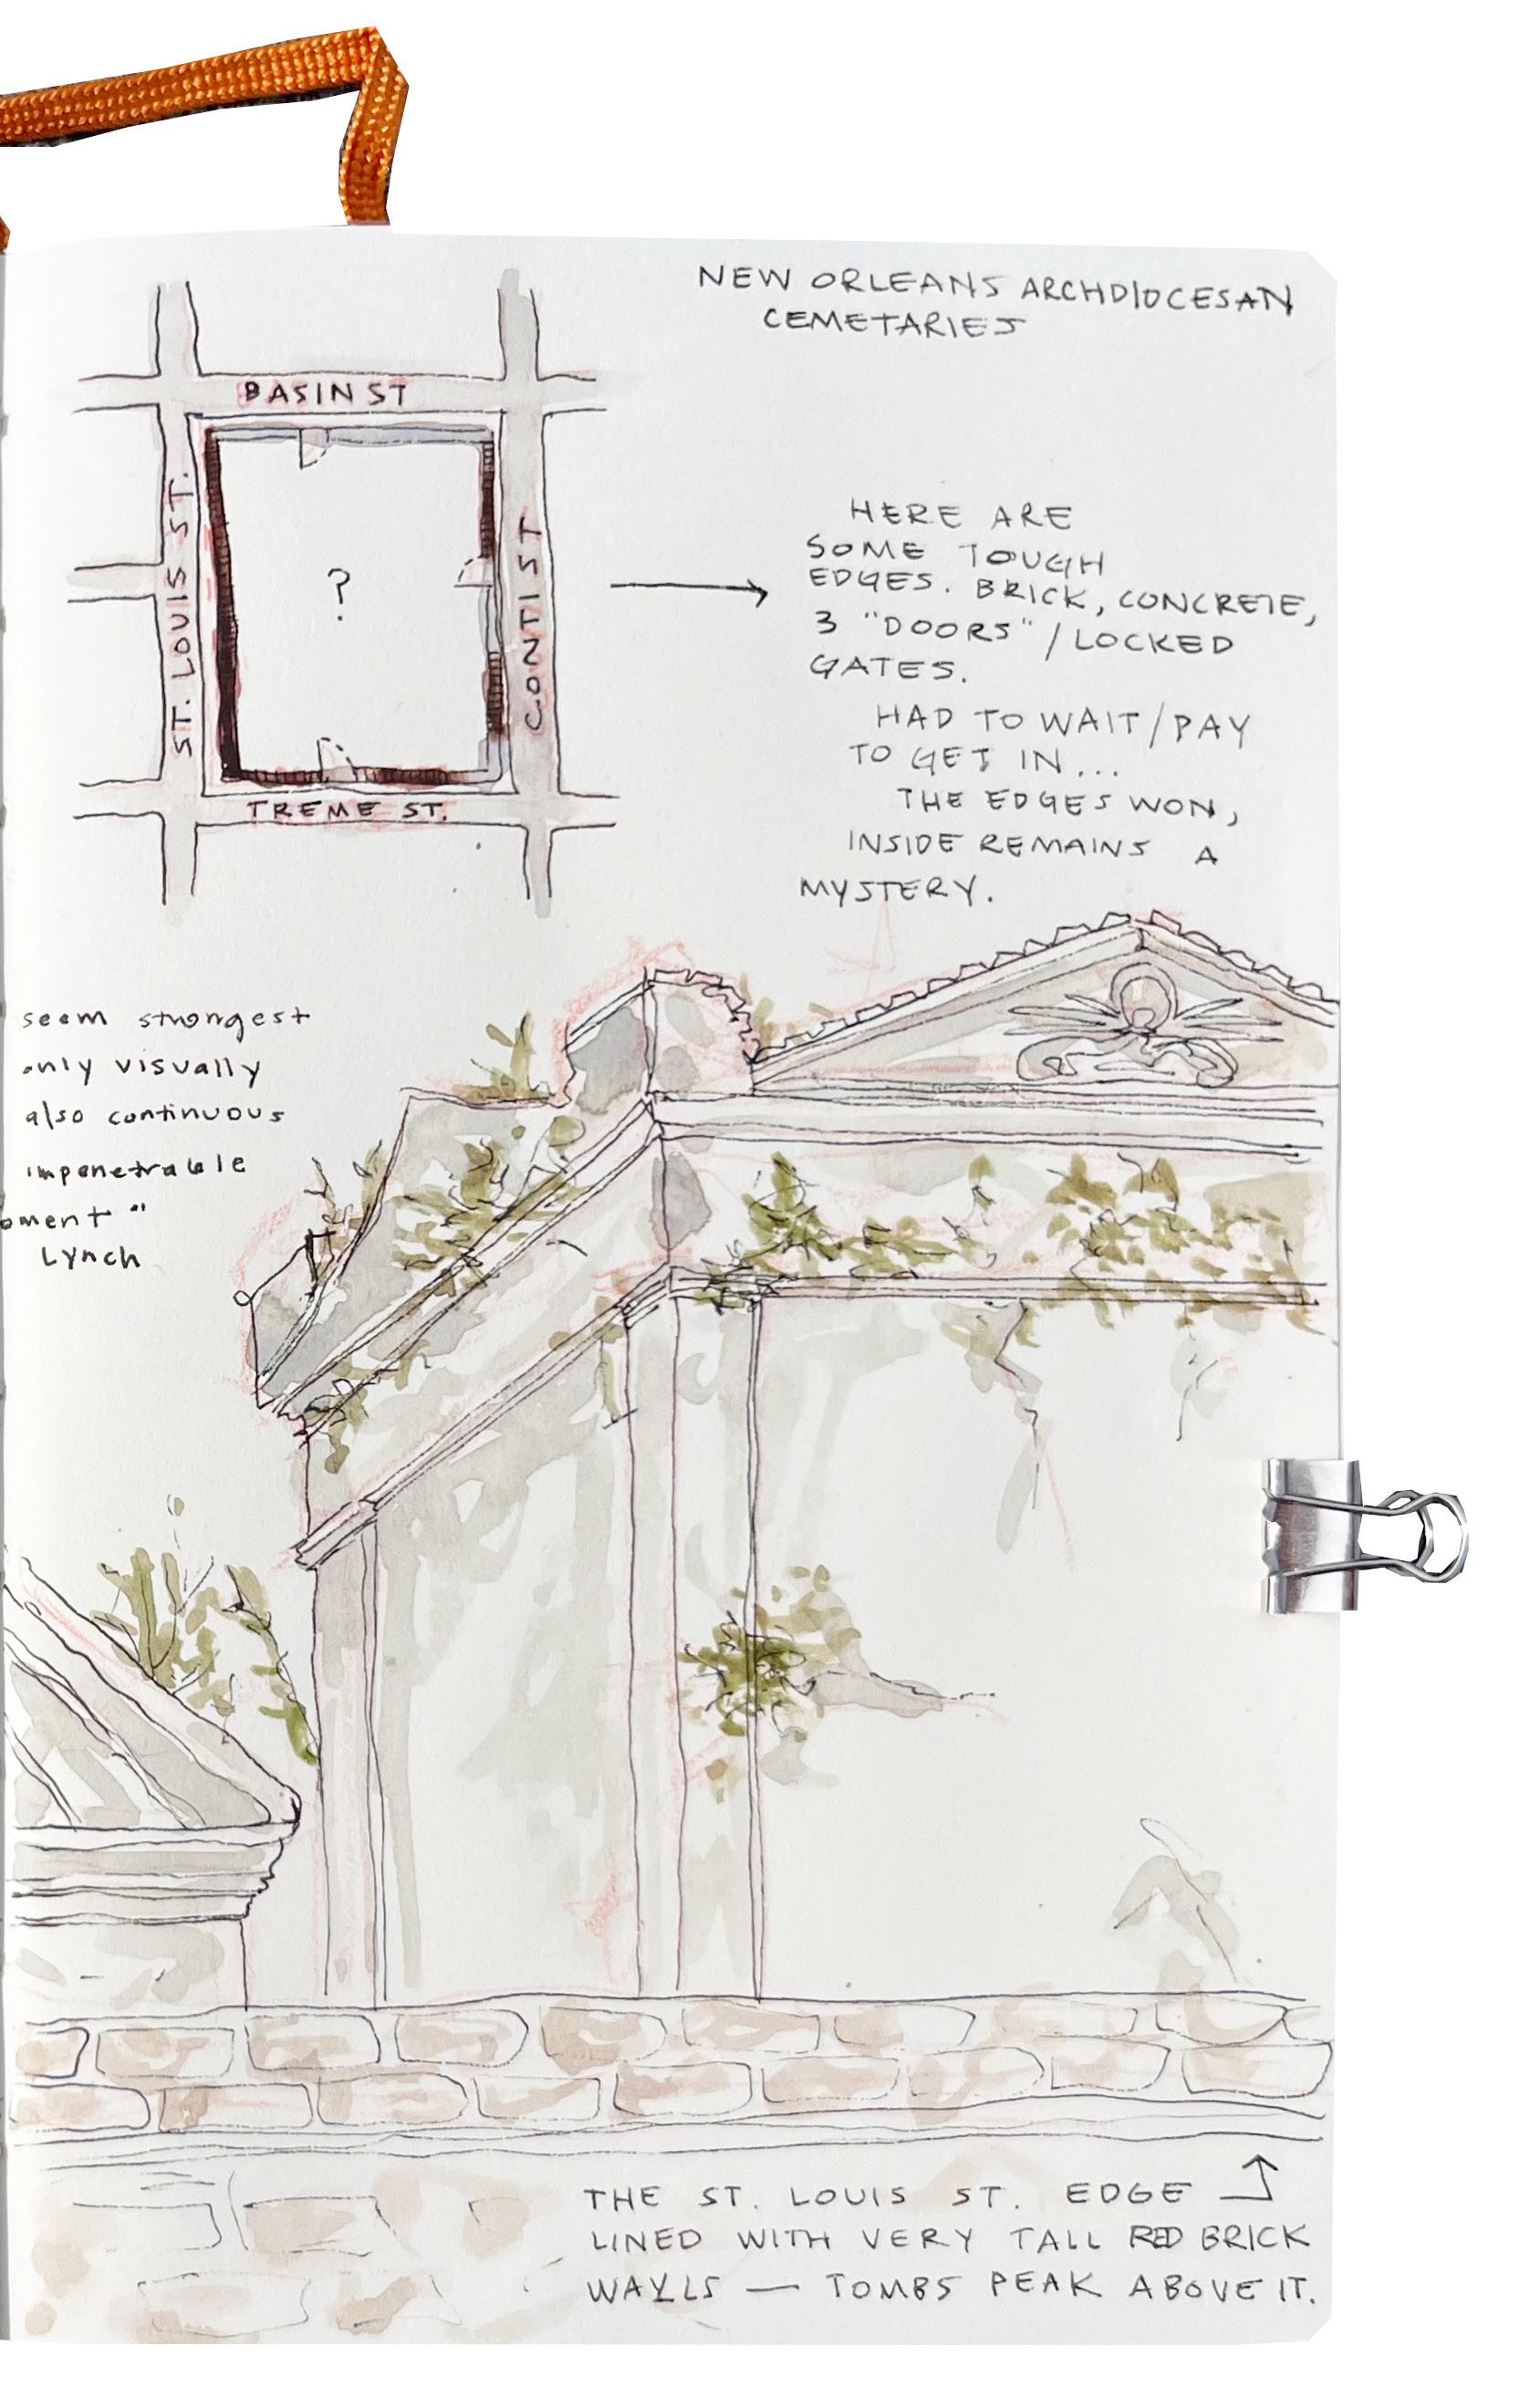 NEW ORLEANS ARCHDIOCESAN
CEMETARIES
BASIN ST
ST. LOUIS ST.
?
CONTI ST
TREME ST.
HERE ARE
SOME TOUGH
EDGES. BRICK, CONCRETE,
3 "DOORS" / LOCKED
GATES.
HAD TO WAIT/PAY
TO GET IN...
THE EDGES WON,
INSIDE REMAINS A
MYSTERY.
seem strongest
only visually
also continuous
impenetrable
oment"
Lynch
THE ST. LOUIS ST. EDGE
LINED WITH VERY TALL RED BRICK
WALLS — TOMBS PEAK ABOVE IT.